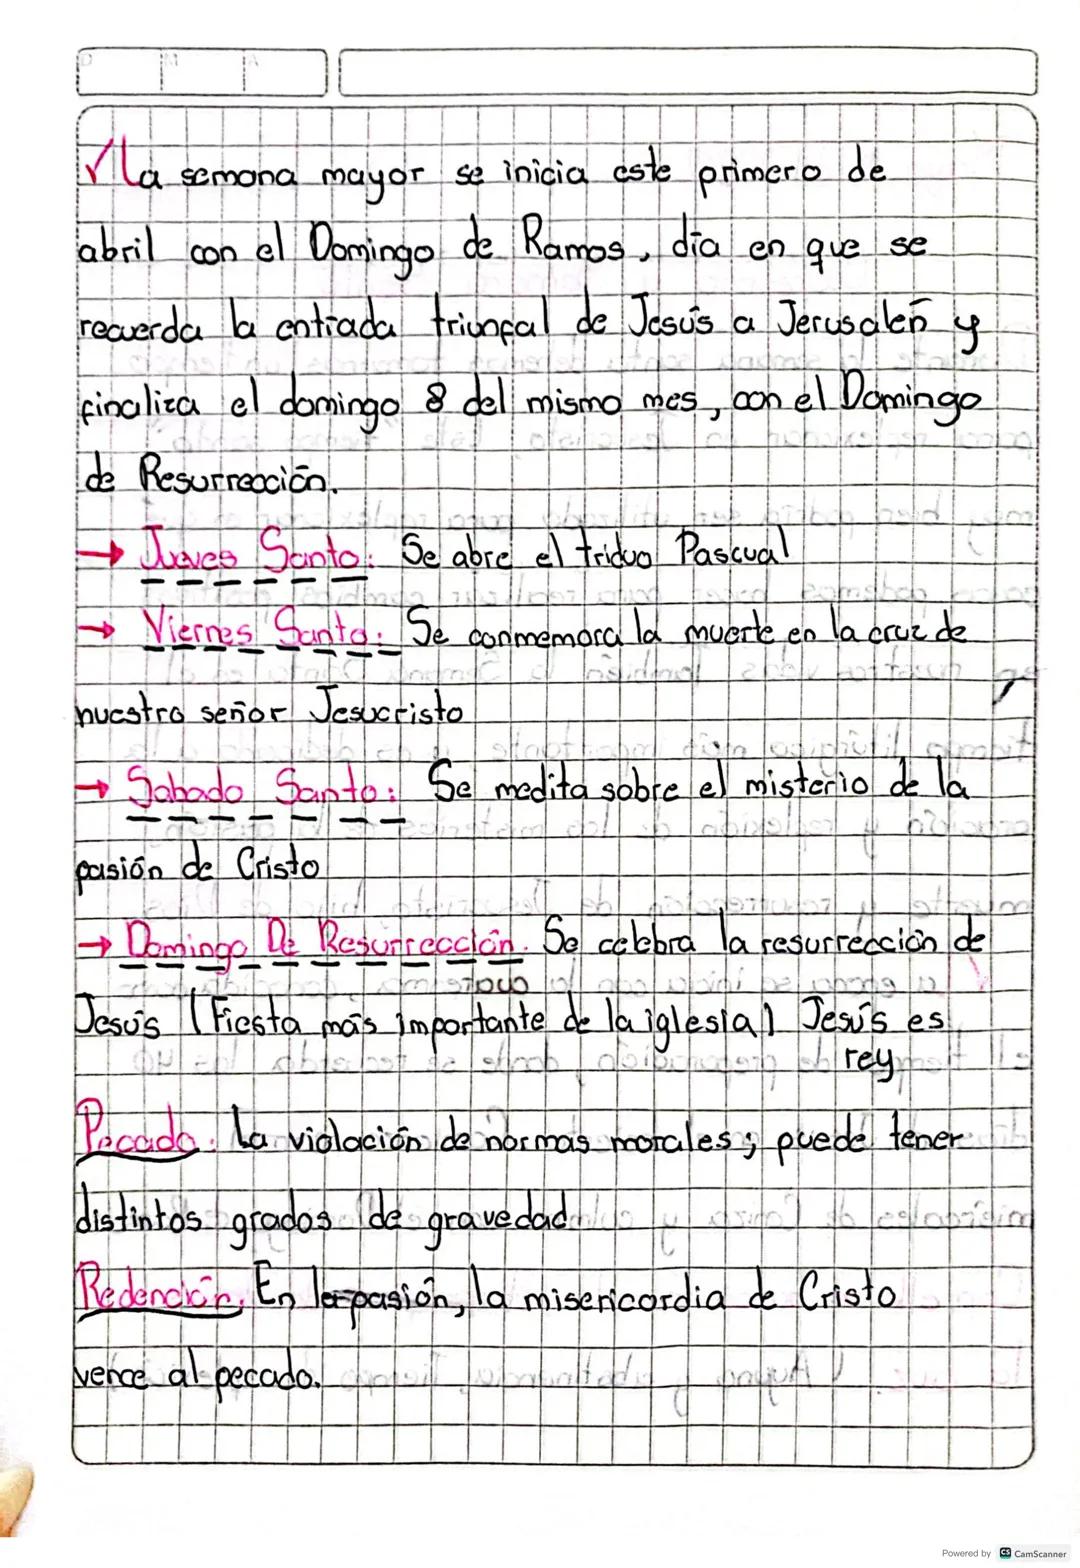 D M A
✓ La semana mayor se inicia este primero de
abril con el Domingo de Ramos, día en que se
recuerda la entrada triunfal de Jesús a Jerusalén y
finaliza el domingo 8 del mismo mes, con el Domingo
de Resurrección.
→ Jueves Santo: Se abre el triduo Pascual
→ Viernes Santo: Se conmemora la muerte en la cruz de
nuestro señor Jesucristo
→ Sabado Santo: Se medita sobre el misterio de la
pasión de Cristo
→ Domingo De Resurrección. Se celebra la resurrección de
Jesús (Fiesta más importante de la iglesia) Jesús es
rey
Pecado: La violación de normas morales; puede tener
distintos grados de gravedad
Redención. En la pasión, la misericordia de Cristo
vence al pecado.
Powered by CS CamScanner